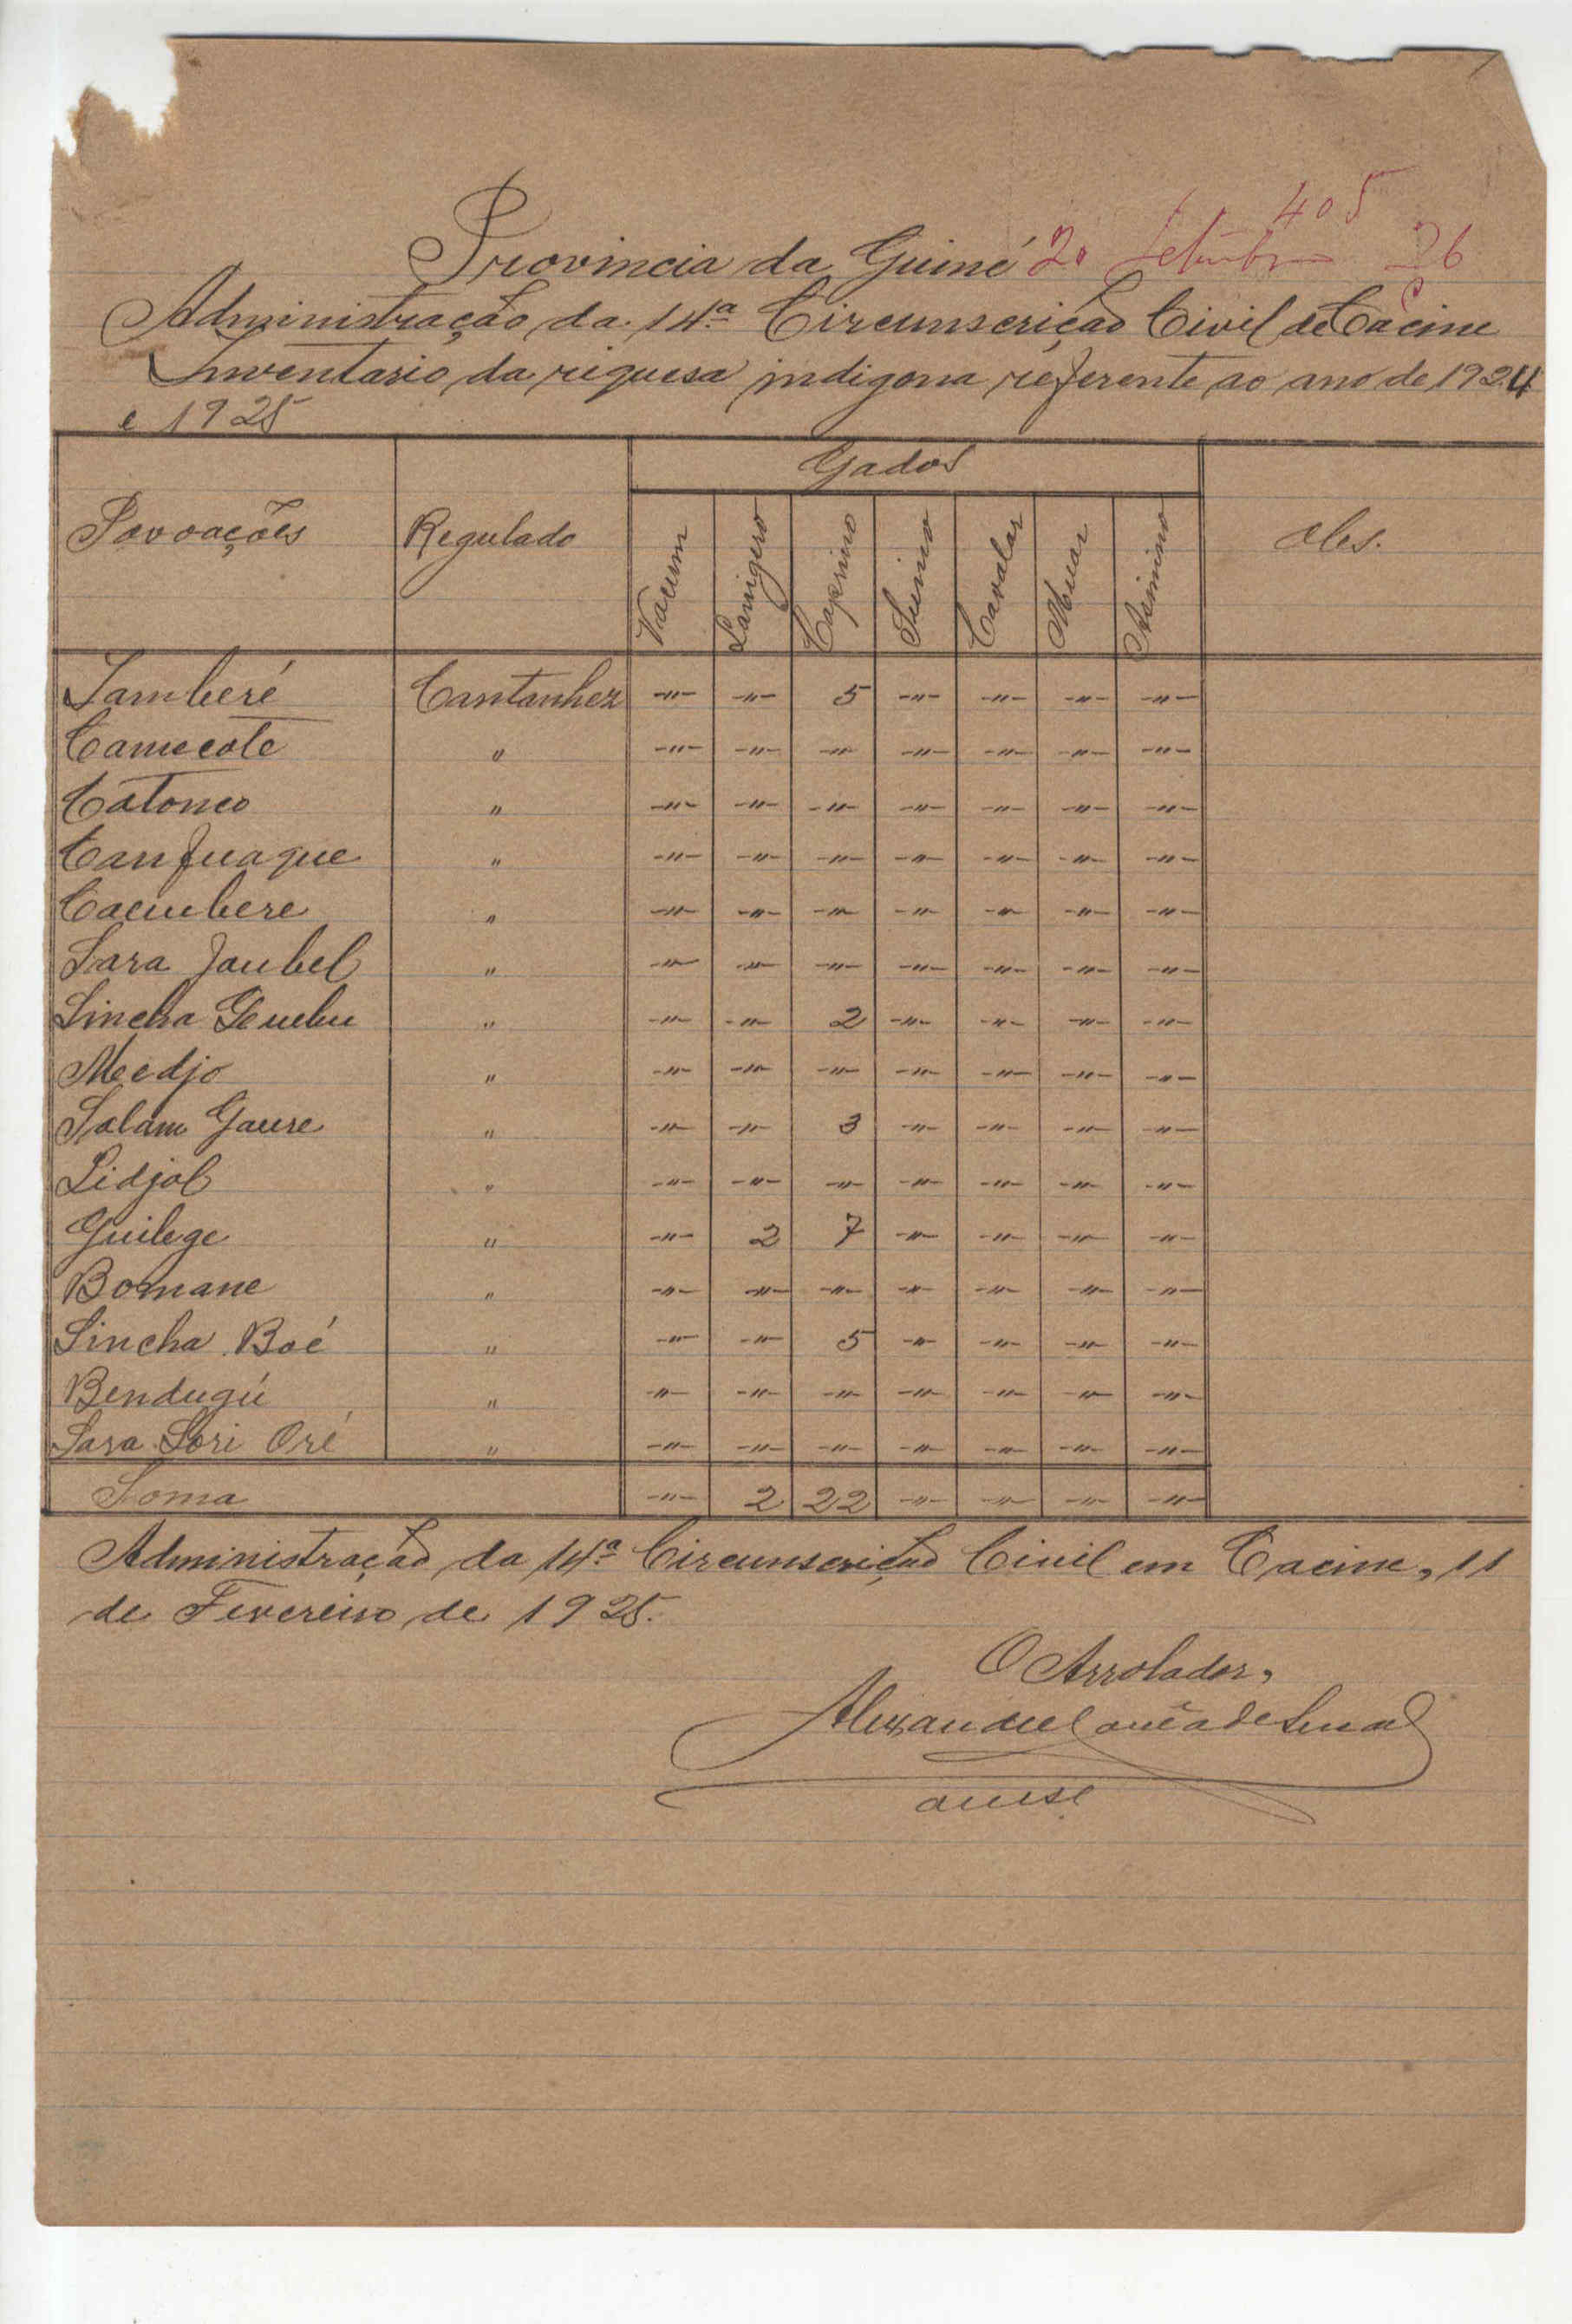 405
Provincia da Guiné 20 Setembro 26
Administração da 14ª Circunscrição Civil de Cacine
Inventario da riquesa indigena referente ao ano de 1924
e 1925
Gados
Povoações Regulado Vacum Lanigero Caprino Suino Cavalar Muar Asinino Obs.
Jamberé Cantanhez -"- -"- 5 -"- -"- -"- -"-
Camecote " -"- -"- -"- -"- -"- -"- -"-
Catomeo " -"- -"- -"- -"- -"- -"- -"-
Canfuaque " -"- -"- -"- -"- -"- -"- -"-
Cacubere " -"- -"- -"- -"- -"- -"- -"-
Sara Jaubel " -"- -"- -"- -"- -"- -"- -"-
Sincha " -"- -"- 2 -"- -"- -"- -"-
Meedjo " -"- -"- -"- -"- -"- -"- -"-
Salam Gaure " -"- -"- 3 -"- -"- -"- -"-
Lidjol " -"- -"- -"- -"- -"- -"- -"-
Guilege " -"- 2 7 -"- -"- -"- -"-
Bomane " -"- -"- -"- -"- -"- -"- -"-
Sincha Boé " -"- -"- 5 -"- -"- -"- -"-
Bendugú " -"- -"- -"- -"- -"- -"- -"-
Sara Sori Oré " -"- -"- -"- -"- -"- -"- -"-
Soma -"- 2 22 -"- -"- -"- -"-
Administração da 14ª Circunscrição Civil em Cacine, 11
de Fevereiro de 1925.
O Arrolador,
Alexandre